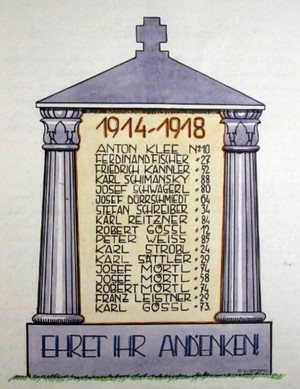 1914-1918
ANTON KLEE Nº10
FERDINAND FISCHER • 27
FRIEDRICH KANNLER • 52
KARL SCHIMANSKY • 88
JOSEF SCHWÄGERL • 80
JOSEF DÜRRSCHMIDT • 64
STEFAN SCHREIBER • 34
KARL REITZNER • 84
ROBERT GÖSSL • 12
PETER WEISS • 85
KARL STROBL • 24
KARL SÄTTLER • 29
JOSEF MÖRTL • 74
JOSEF MÖRTL • 58
ROBERT MÖRTL • 74
FRANZ LEISTNER • 29
KARL GÖSSL • 73
EHRET IHR ANDENKEN!